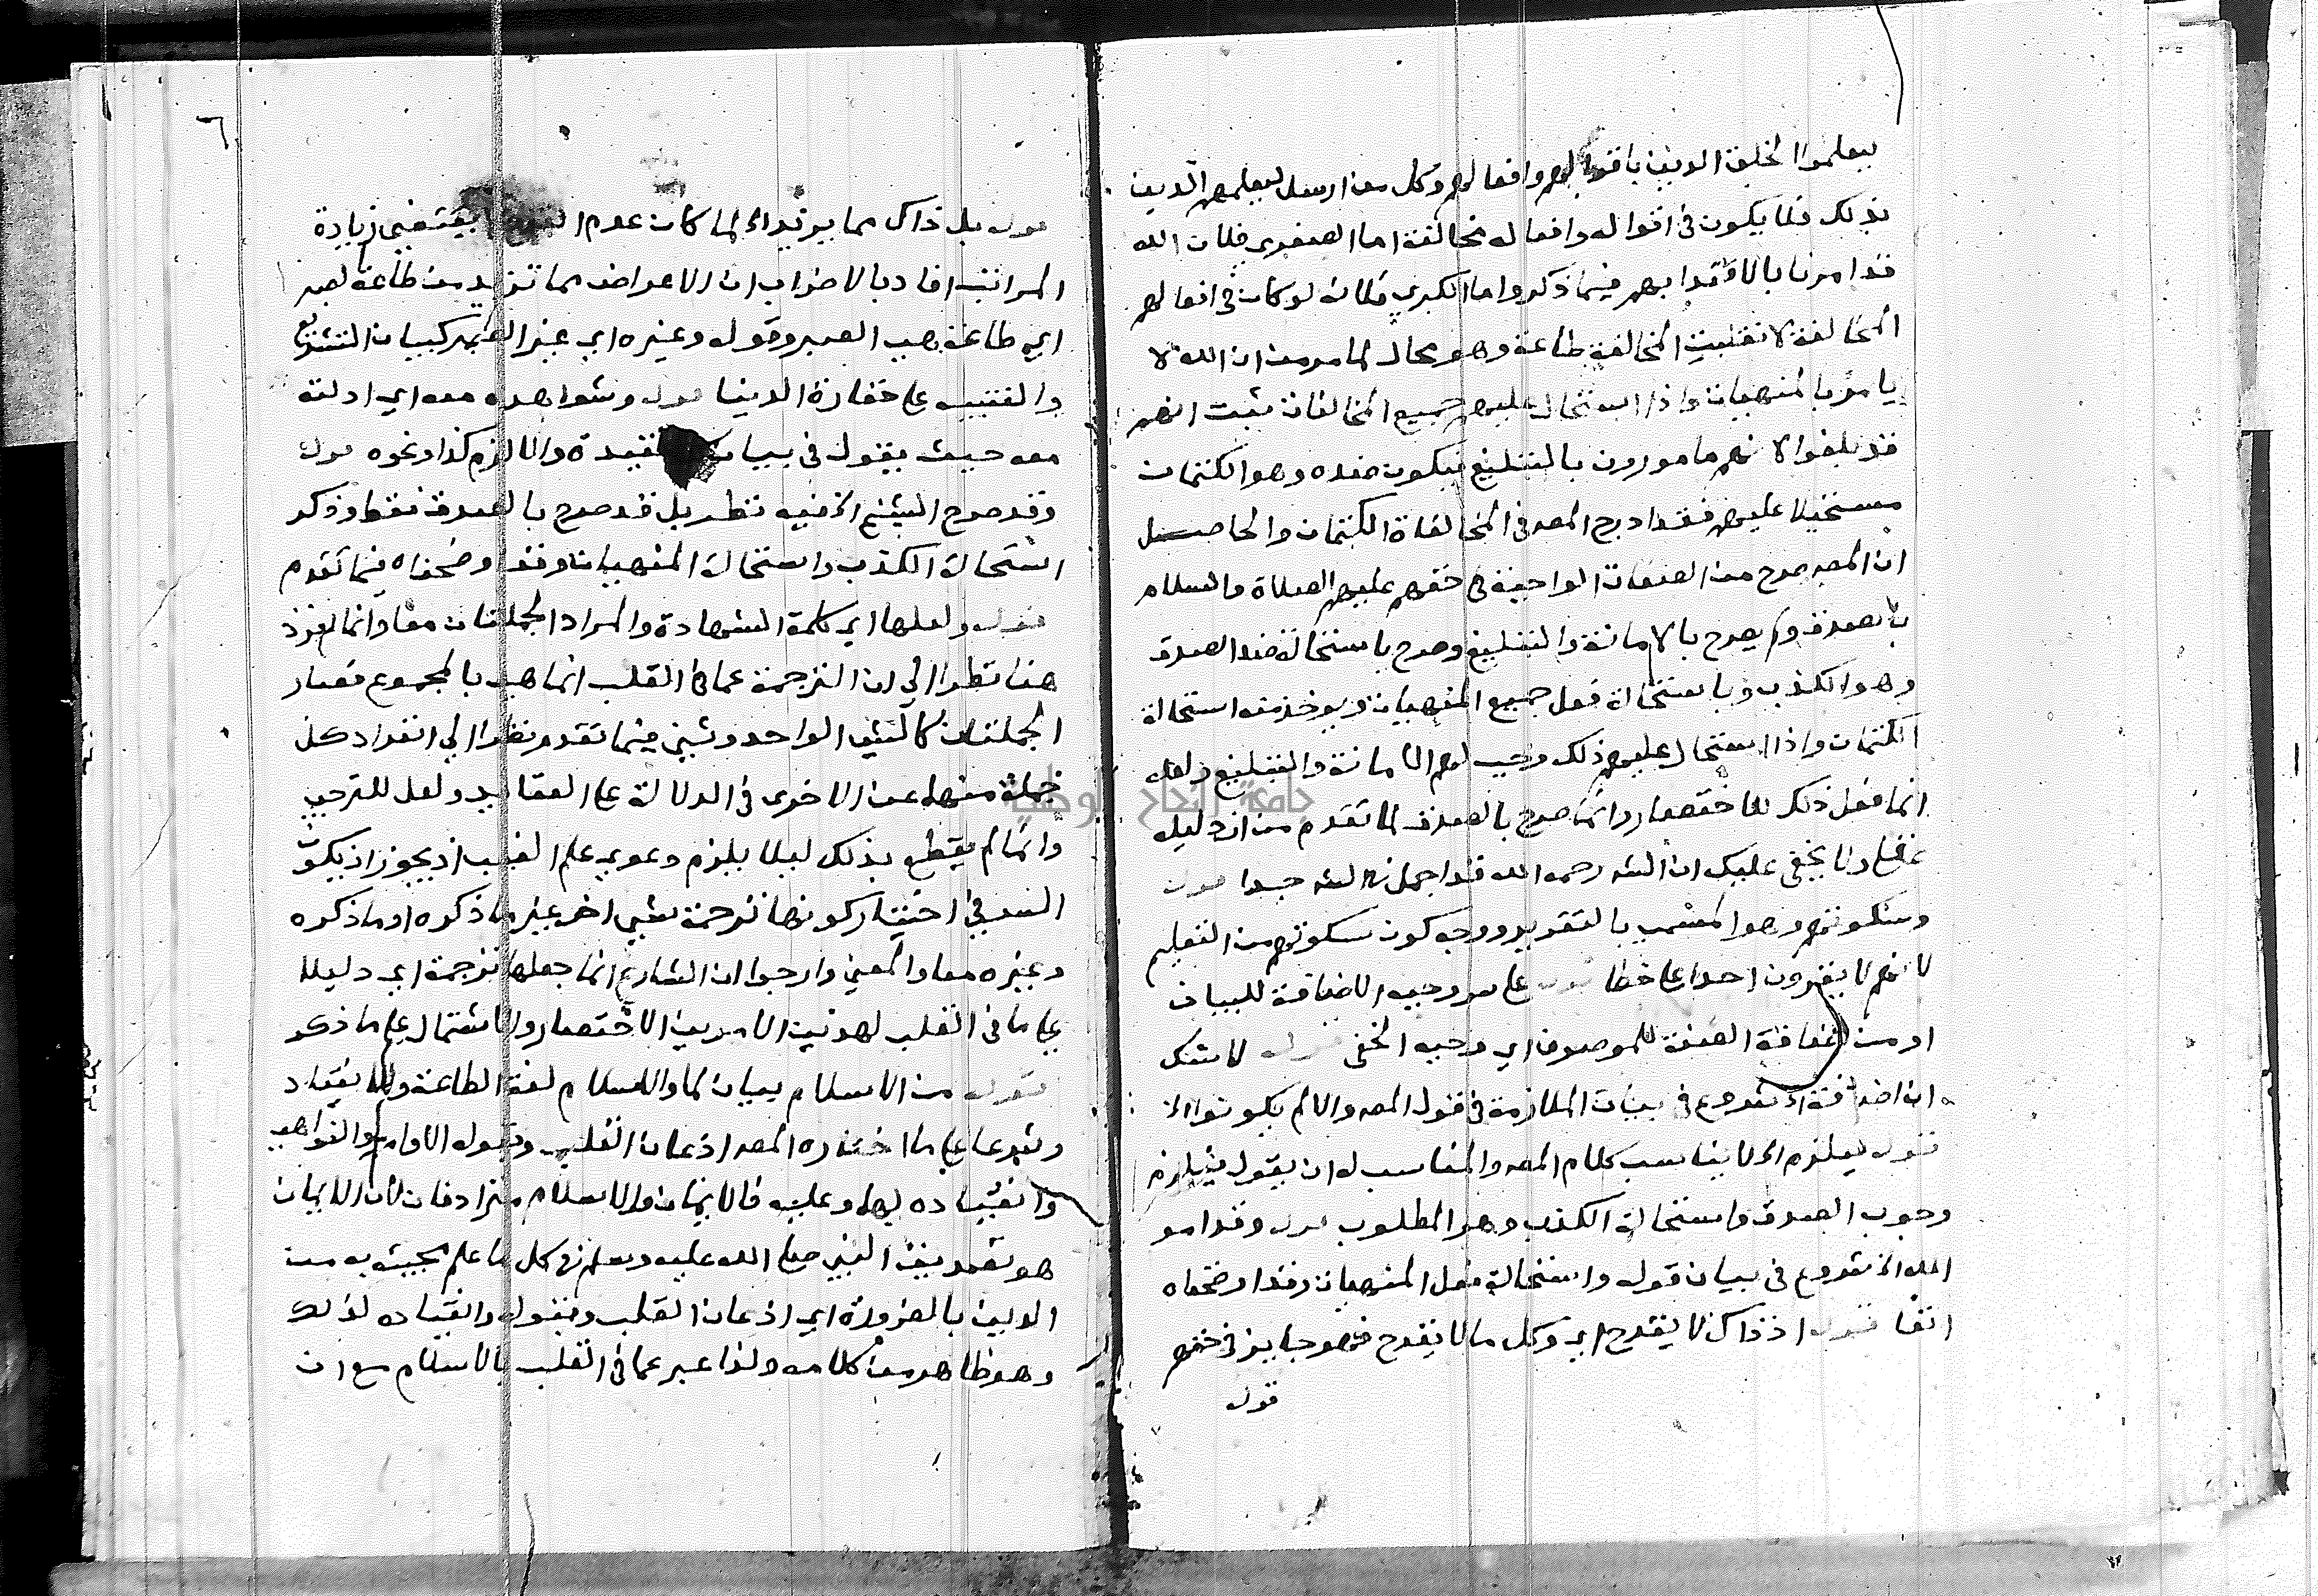 ليعلموا الخلق الدين باقوالهم وافعالهم وكل من ارسل ليعلمهم الدين
بذلك فلا يكون في اقواله وافعاله مخالفة اما الصغرى فلان الله
قد امرنا بالاقتدا بهم فيما ذكر واما الكبرى فلانه لو كان في افعالهم
المخالفة لانقلبت المخالفة طاعة وهو محال لما مر من ان الله لا
يامر بالمنهيات واذا استحال عليهم جميع المخالفات ثبت انهم
قد بلغوا لانهم مامورون بالتبليغ فيكون ضده وهو الكتمان
مستحيلا عليهم فقد ادرج المصـ في المخالفة الكتمان والحاصل
ان المصـ صرح من الصفات الواجبة في حقهم عليهم الصلاة والسلام
بالصدق ولم يصرح بالامانة والتبليغ وصرح باستحالة ضد الصدق
وهو الكذب وباستحالة فعل جميع المنهيات ويوخذ منه استحالة
الكتمان واذا استحال عليهم ذلك وجب لهم الامانة والتبليغ ولعله
انما فعل ذلك للاختصار وانما صرح بالصدق لما تقدم من ان دليله
عقلي ولا يخفى عليك ان الشـ رحمه الله قد اجمل في الشـ جدا قوله
وسكوتهم وهو المسمى بالتقرير ووجه كون سكوتهم من التعليم
لانهم لا يقرون احدا على خطا قوله على سر وحيه الاضافة للبيان
او من اضافة الصفة للموصوف اي وحيه الخفي قوله لا شك
ان اضافة الخ شروع في بيان الملازمة في قول المصـ والا لم يكونوا الخ
قوله ليلزم الخ لا يناسب كلام المصـ والمناسب له ان يقول فيلزم
وجوب الصدق واستحالة الكذب وهو المطلوب قوله وقد امر
الله الخ شروع في بيان قوله واستحالة فعل المنهيات وقد اوضحناه
انفا قوله اذ ذاك لا يقدح اي وكل ما لا يقدح فهو جايز في حقهم
قوله
٦
قوله بل ذاك مما يزيد الخ لما كان عدم القدح لا يقتضي زيادة
المراتب افاد بالاضراب ان الاعراض مما تزيد من طاعة لصبر
اي طاعة هي الصبر وقوله وغيره اي غير الصبر كبيان التشريع
والتنبيه على حقارة الدنيا قوله وشواهده معه اي ادلته
معه حيث يقول في بيان كل عقيدة والا لزم كذا ونحوه قوله
وقد صرح الشيخ الخ فيه نظر بل قد صرح بالصدق فقط وذكر
استحالة الكذب واستحالة المنهيات وقد اوضحناه فيما تقدم
قوله ولعلها اي كلمة الشهادة والمراد الجملتان معا وانما افرد
هنا نظرا الي ان الترجمة عما في القلب انما هي بالمجموع فصار
الجملتان كالشي الواحد وثني فيما تقدم نظرا الي انفراد كل
جملة منهما عن الاخرى في الدلالة على العقايد ولعل للترجي
وانما لم يقطع بذلك ليلا يلزم دعوي علم الغيب اذ يجوز ان يكون
السر في اختيار كونها ترجمة شي اخر غير ما ذكره او ما ذكره
وغيره معا والمعني وارجوا ان الشارع انما جعلها ترجمة اي دليلا
على ما في القلب لهذين الامرين الاختصار والاشتمال على ما ذكر
قوله من الاسلام بيان لما والاسلام لغة الطاعة والانقياد
وشرعا على ما اختاره المصـ اذعان القلب وقبوله الاوامر والنواهي
وانقياده لها وعليه فالايمان والاسلام مترادفان لان الايمان
هو تصديق النبي صلى الله عليه وسلم في كل ما علم مجيئه به من
الدين بالضرورة اي اذعان القلب وقبوله وانقياده لذلك
وهو ظاهر من كلامه ولذا عبر عما في القلب بالاسلام مع ان
جامعة النجاح الوطنية